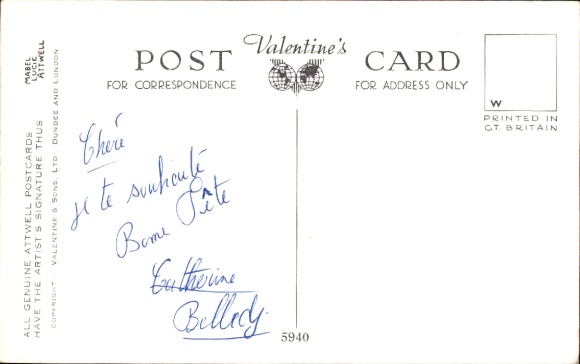 POST Valentine's CARD
FOR CORRESPONDENCE
FOR ADDRESS ONLY
W
PRINTED IN
GT. BRITAIN
ALL GENUINE ATTWELL POSTCARDS
HAVE THE ARTIST'S SIGNATURE THUS
MABEL
LUCIE
ATTWELL
COPYRIGHT VALENTINE & SONS, LTD. DUNDEE AND LONDON
Cheré
je te souhaité
Bonne Fête
Catherine
5940